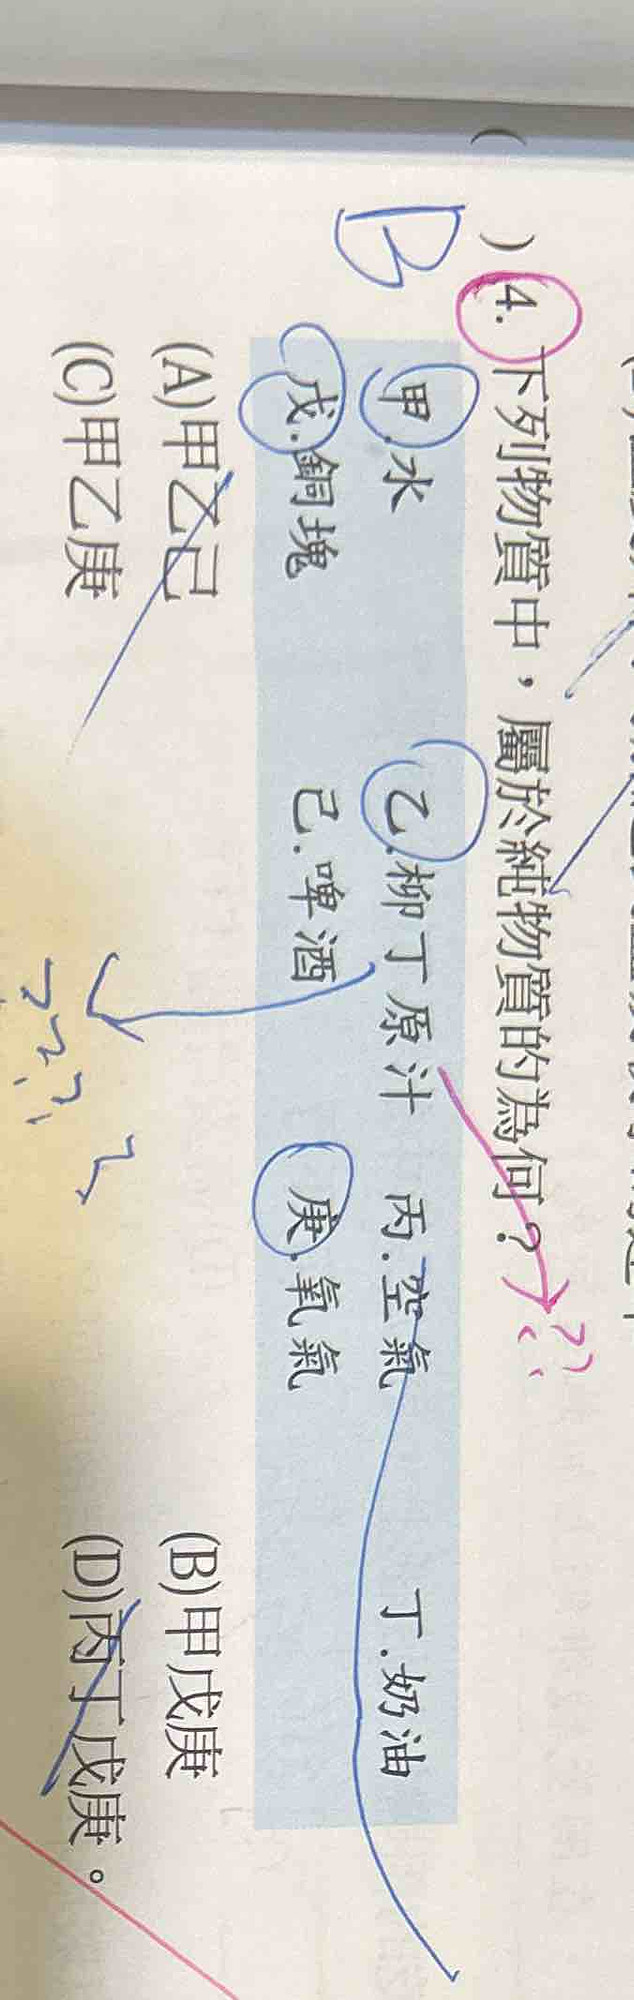 ( ) 4. 下列物質中，屬於純物質的為何？
B
甲.水 乙.柳丁原汁 丙.空氣 丁.奶油
戊.銅塊 己.啤酒 庚.氧氣
(A)甲乙己 (B)甲戊庚
(C)甲乙庚 (D)丙丁戊庚。
??